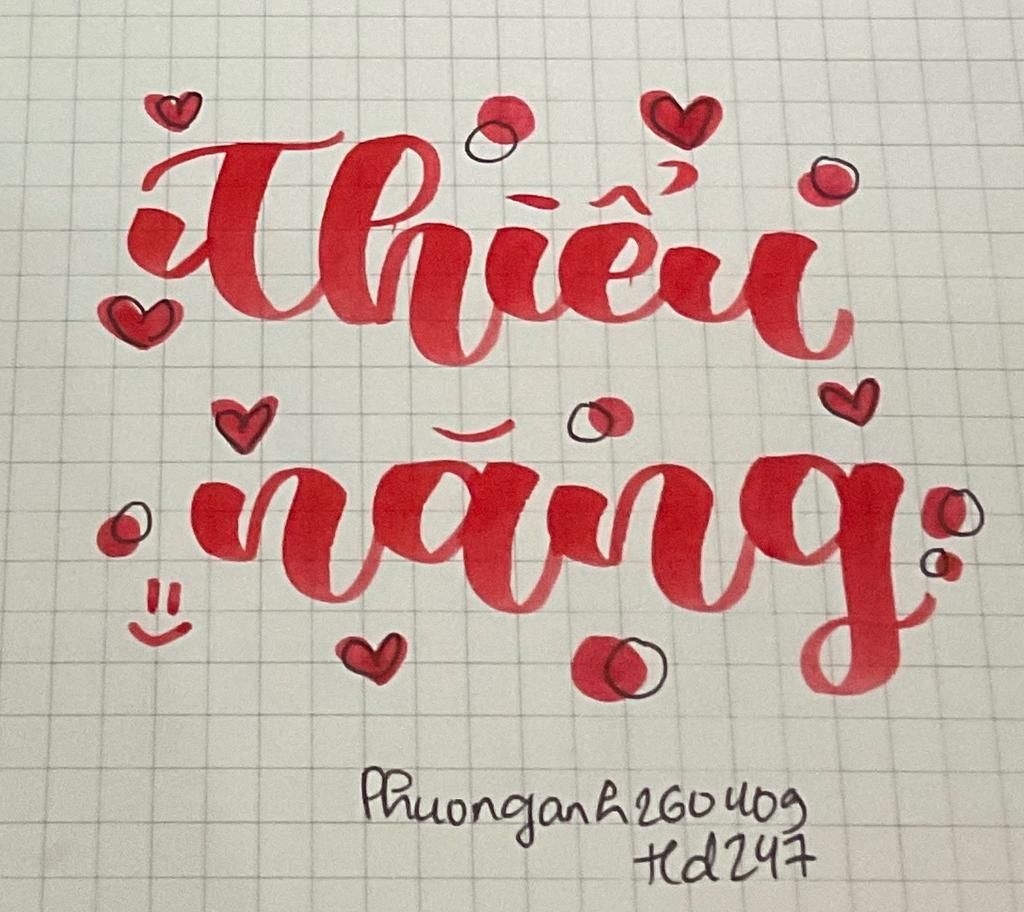 Thiểu
năng
Phuonganh260409
Hd247